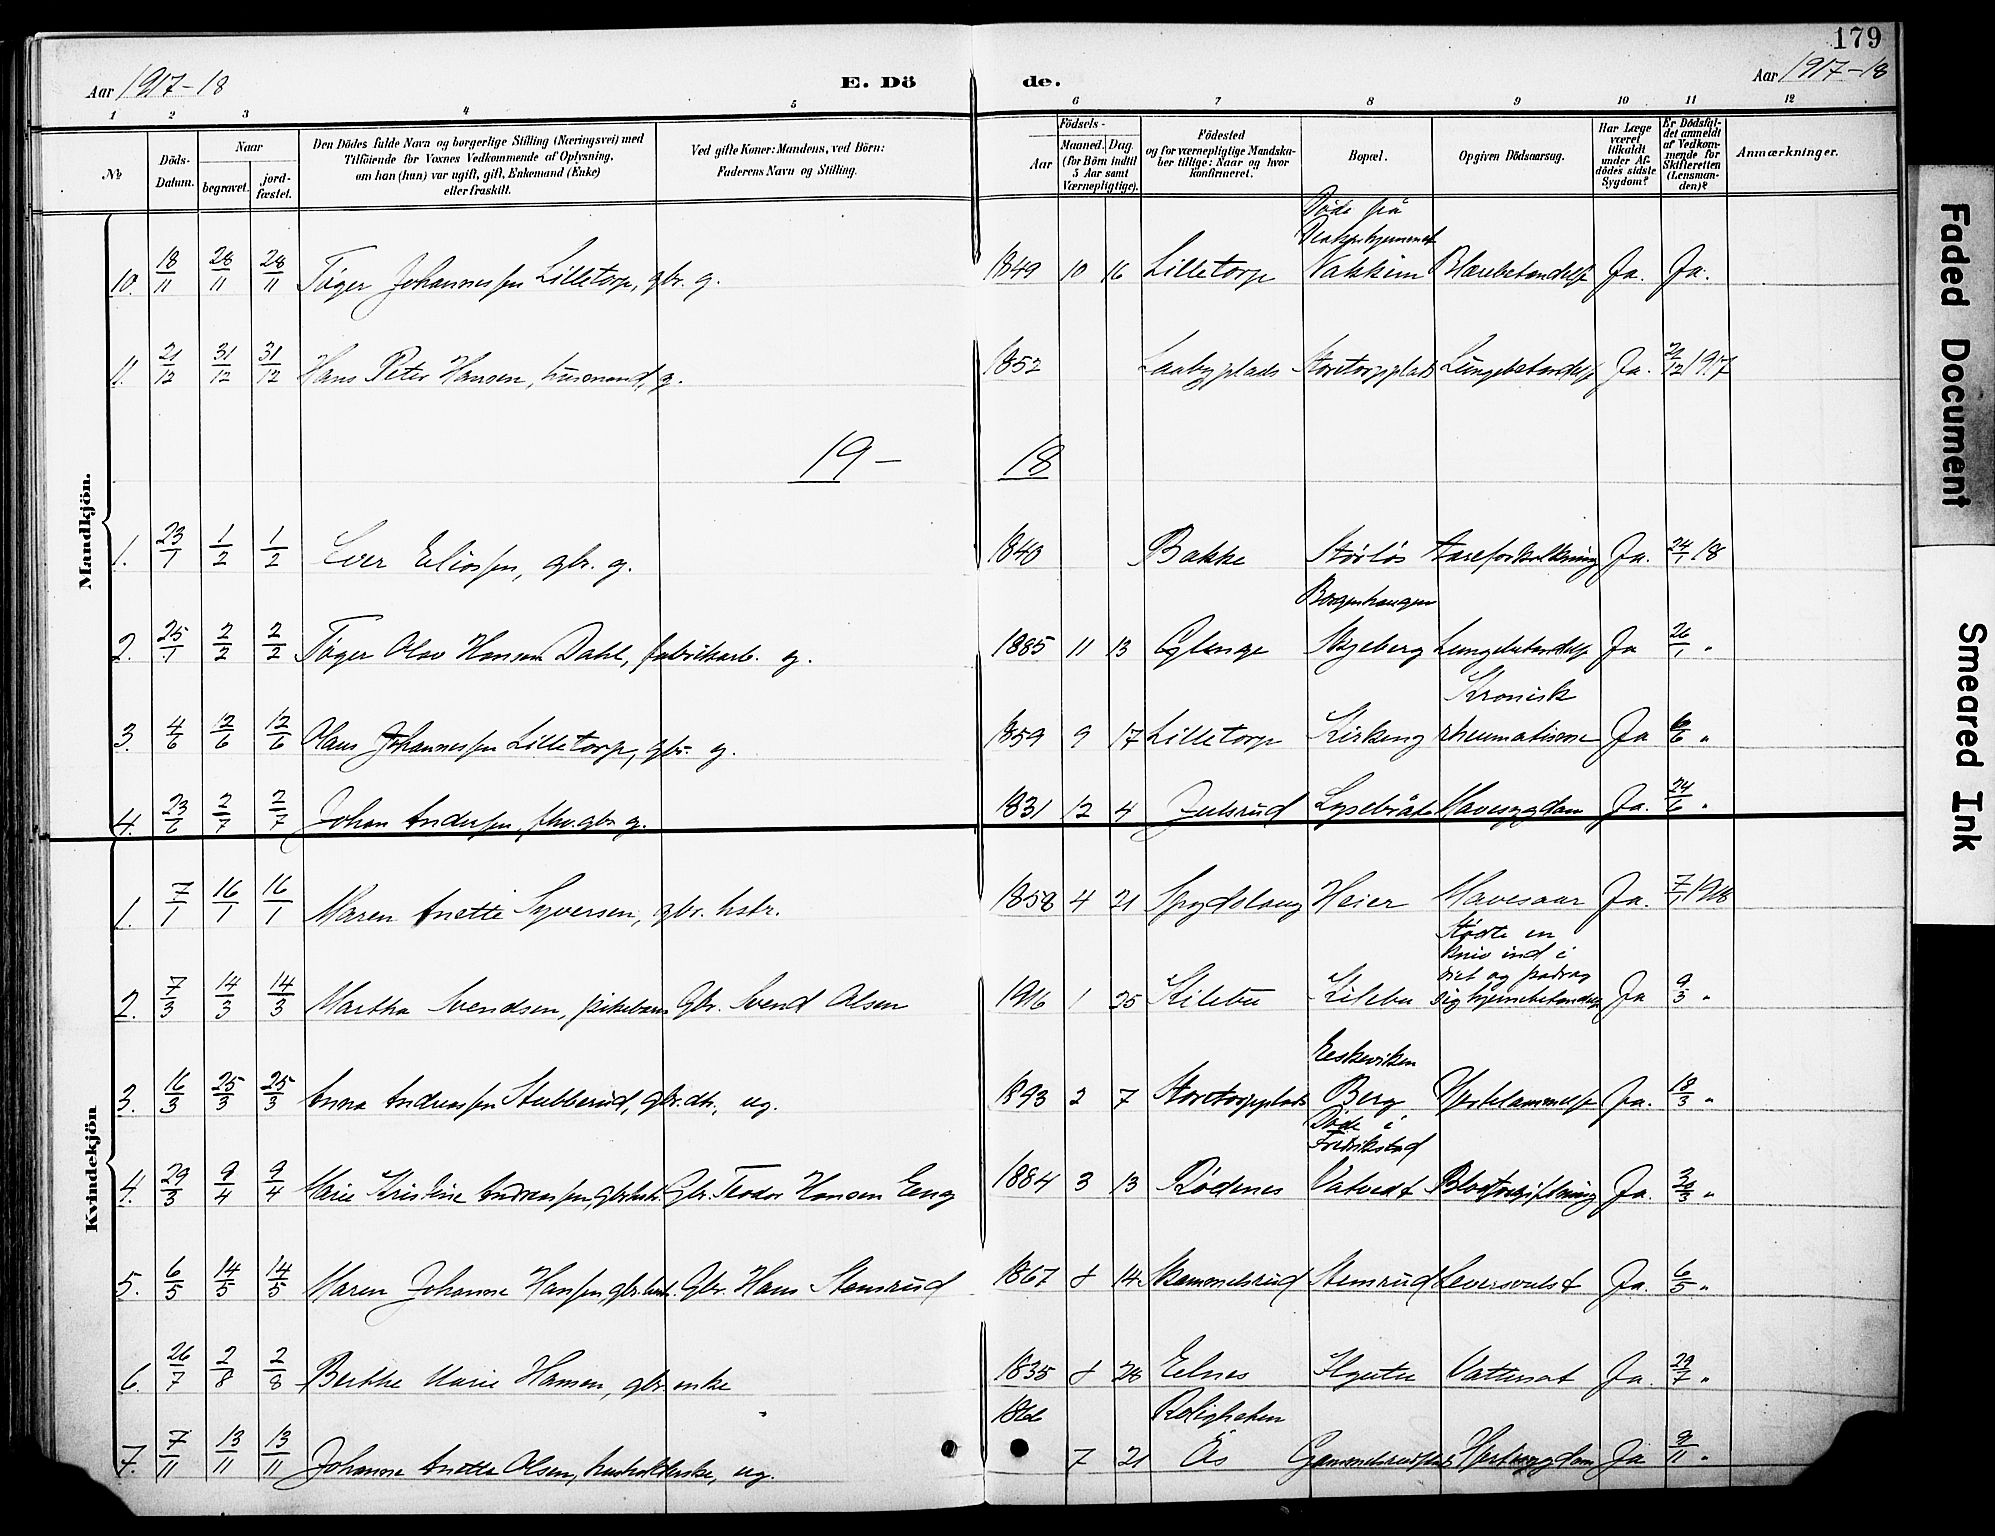 179
Aar 1917-18 E. Dö de. Aar 1917-18
1 2 3 4 5 6 7 8 9 10 11 12
№
Döds-Datum.
Naar
begravet.
jord-fæstet.
Den Dödes fulde Navn og borgerlige Stilling (Næringsvei) med
Tilföiende for Voxnes Vedkommende af Oplysning,
om han (hun) var ugift, gift, Enkemand (Enke)
eller fraskilt.
Ved gifte Koner: Mandens, ved Börn:
Faderens Navn og Stilling.
Födsels-
Aar
Maaned. Dag
(for Börn indtil
5 Aar samt
Værnepligtige).
Födested
og for værnepligtige Mandska-
ber tillige: Naar og hvor
konfirmeret.
Bopæl.
Opgiven Dödsaarsag.
Har Læge
været
tilkaldt
under Af-
dödes sidste
Sygdom?
Er Dödsfal-
det anmeldt
af Vedkom-
mende for
Skifteretten
(Lensman-
den)?
Anmærkninger.
Mandkjön.
Døde på
10. 18/11 28/11 28/11 Tøger Johannessen Lilletorp, gbr. g. 1849 10 16 Lilletorp Vakkim Blærebetændelse Ja. Ja.
11. 21/12 31/12 31/12 Hans Peter Hansen, husmand, g. 1852 Laabyplads Storetorpplads Lungebetændelse Ja. 21/12 1917
19- 18
1. 23/1 1/2 1/2 Iver Eliassen, gbr. g. 1840 Bakke Størløs Aareforkalkning Ja. 24/1 18
Borgenhaugen
2. 25/1 2/2 2/2 Tøger Olav Hansen Dahl, fabrikarb. g. 1885 11 13 Glenge Skjeberg Lungebetændelse Ja 26/1 "
Kronisk
3. 4/6 12/6 12/6 Olaus Johannessen Lilletorp, gbr. g. 1859 9 17 Lilletorp Kirkeng rheumatisme Ja 6/6 "
4. 23/6 2/7 2/7 Johan Anderssen, fhv. gbr. g. 1831 12 4 Julsrud Lysebråte Mavesygdom Ja. 24/6 "
Kvindekjön
1. 7/1 16/1 16/1 Maren Anette Syversen, gbr. hstr. 1858 4 21 Spydslaug Heier Mavesaar Ja. 7/1 1918
Stødte en
kniv ind i
øiet og padrog
2. 7/3 14/3 14/3 Martha Svendsen, pikebarn Gbr. Svend Olsen 1916 1 25 Kilebu Kilebu sig hjernebetændelse Ja 9/3 "
Eskeviken
3. 16/3 25/3 25/3 Anna Andreassen Stubberud, gbr. dtr., ug. 1893 2 7 Storetorpplads Berg Hjertelammelse Ja. 18/3 "
Døde i
Fredrikstad
4. 29/3 9/4 9/4 Marie Kristine Andreassen, gbr. hstr. Gbr. Teodor Hansen Eng 1884 3 13 Rødenes Vatvedt Blodforgiftning Ja. 30/3 "
5. 6/5 14/5 14/5 Maren Johanne Hanssen, gbr. hustr. Gbr. Hans Stemsrud 1867 8 14 Gammelsrud Stemsrud Leversvulst Ja. 6/5 "
6. 26/7 2/8 2/8 Berthe Marie Hansen, gbr. enke 1835 8 28 Eelnes Vattersot Ja. 29/7 "
Roligheten
7. 7/11 13/11 13/11 Johanne Anette Olsen, husholderske, ug. 7 21 Ås Hjertesygdom Ja 9/11 "
Faded Document
Smeared Ink